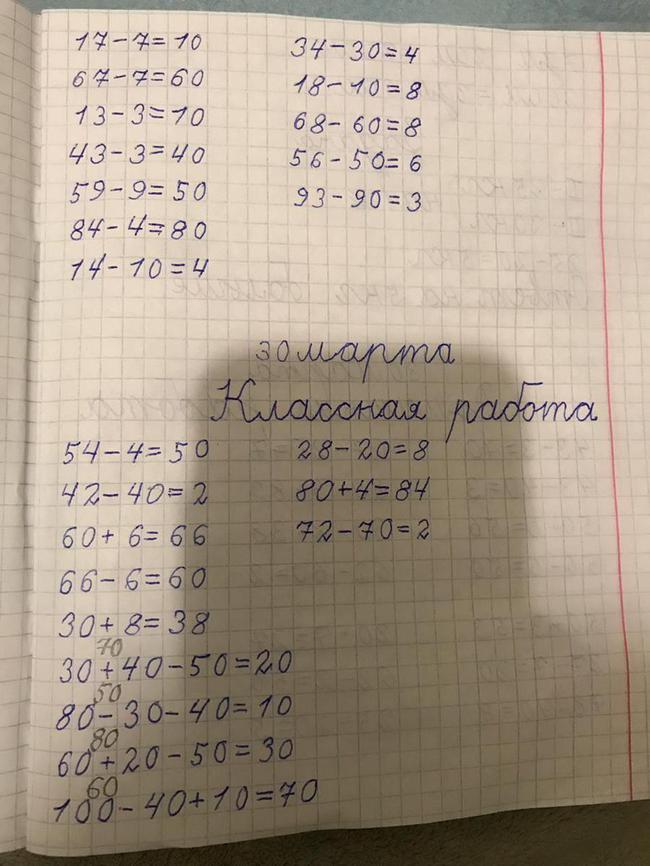 17-7=10
67-7=60
13-3=10
43-3=40
59-9=50
84-4=80
14-10=4
34-30=4
18-10=8
68-60=8
56-50=6
93-90=3
30 марта
Классная работа
54-4=50
42-40=2
60+6=66
66-6=60
30+8=38
28-20=8
80+4=84
72-70=2
70
30+40-50=20
50
80-30-40=10
80
60+20-50=30
60
100-40+10=70